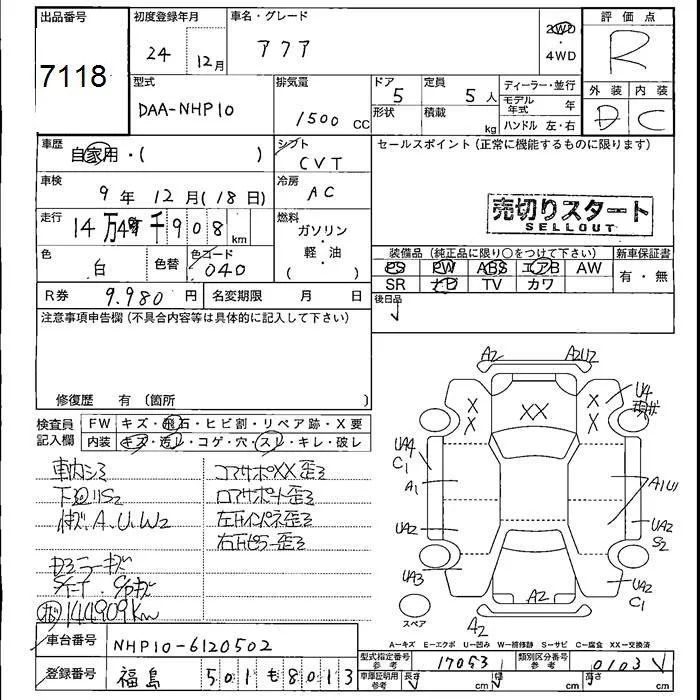 出品番号
7118
初度登録年月
24 12月
車名・グレード
アクア
2WD・4WD
評価点
R
型式
DAA-NHP10
排気量
1500 CC
ドア 5
形状
定員 5人
積載 kg
ディーラー・並行
モデル年式 年
ハンドル 左・右
外装 内装
D C
車歴
自家用・( )
シフト
CVT
セールスポイント(正常に機能するものに限ります)
車検
9年 12月(18日)
冷房
AC
売切りスタート
SELLOUT
走行
14万4千908km
燃料
ガソリン・軽・油
( )
色
白
色替
色コード
040
装備品(純正品に限り○をつけて下さい)
新車保証書
PS PW ABS エアB AW
有・無
SR ナビ TV カワ
R券 9.980円
名変期限 月 日
後日品
注意事項申告欄(不具合内容等は具体的に記入して下さい)
修復歴 有(箇所 )
検査員記入欄
FW キズ・飛石・ヒビ割・リペア跡・X要
内装 キズ・汚レ・コゲ・穴・スレ・キレ・破レ
車内シミ
下廻りS2
コアサポXX歪ミ
ロアサポート歪ミ
左Fインパネ歪ミ
右Fピラー歪ミ
A.U.W2
144909km
A2 A2U2
X X XX X X
U4
UA4
C1
A1
A1U1
UA2
UA2
S2
UA3
A2
UA2
C1
スペア
A2
A=キズ E=エクボ U=凹み W=補修跡 S=サビ C=腐食 XX=交換済
車台番号 NHP10-6120502
型式指定番号 参考 17053
類別区分番号 参考 0103
登録番号 福島 501 も 8013
車庫証明用 参考 長さ cm 幅 cm 高さ cm